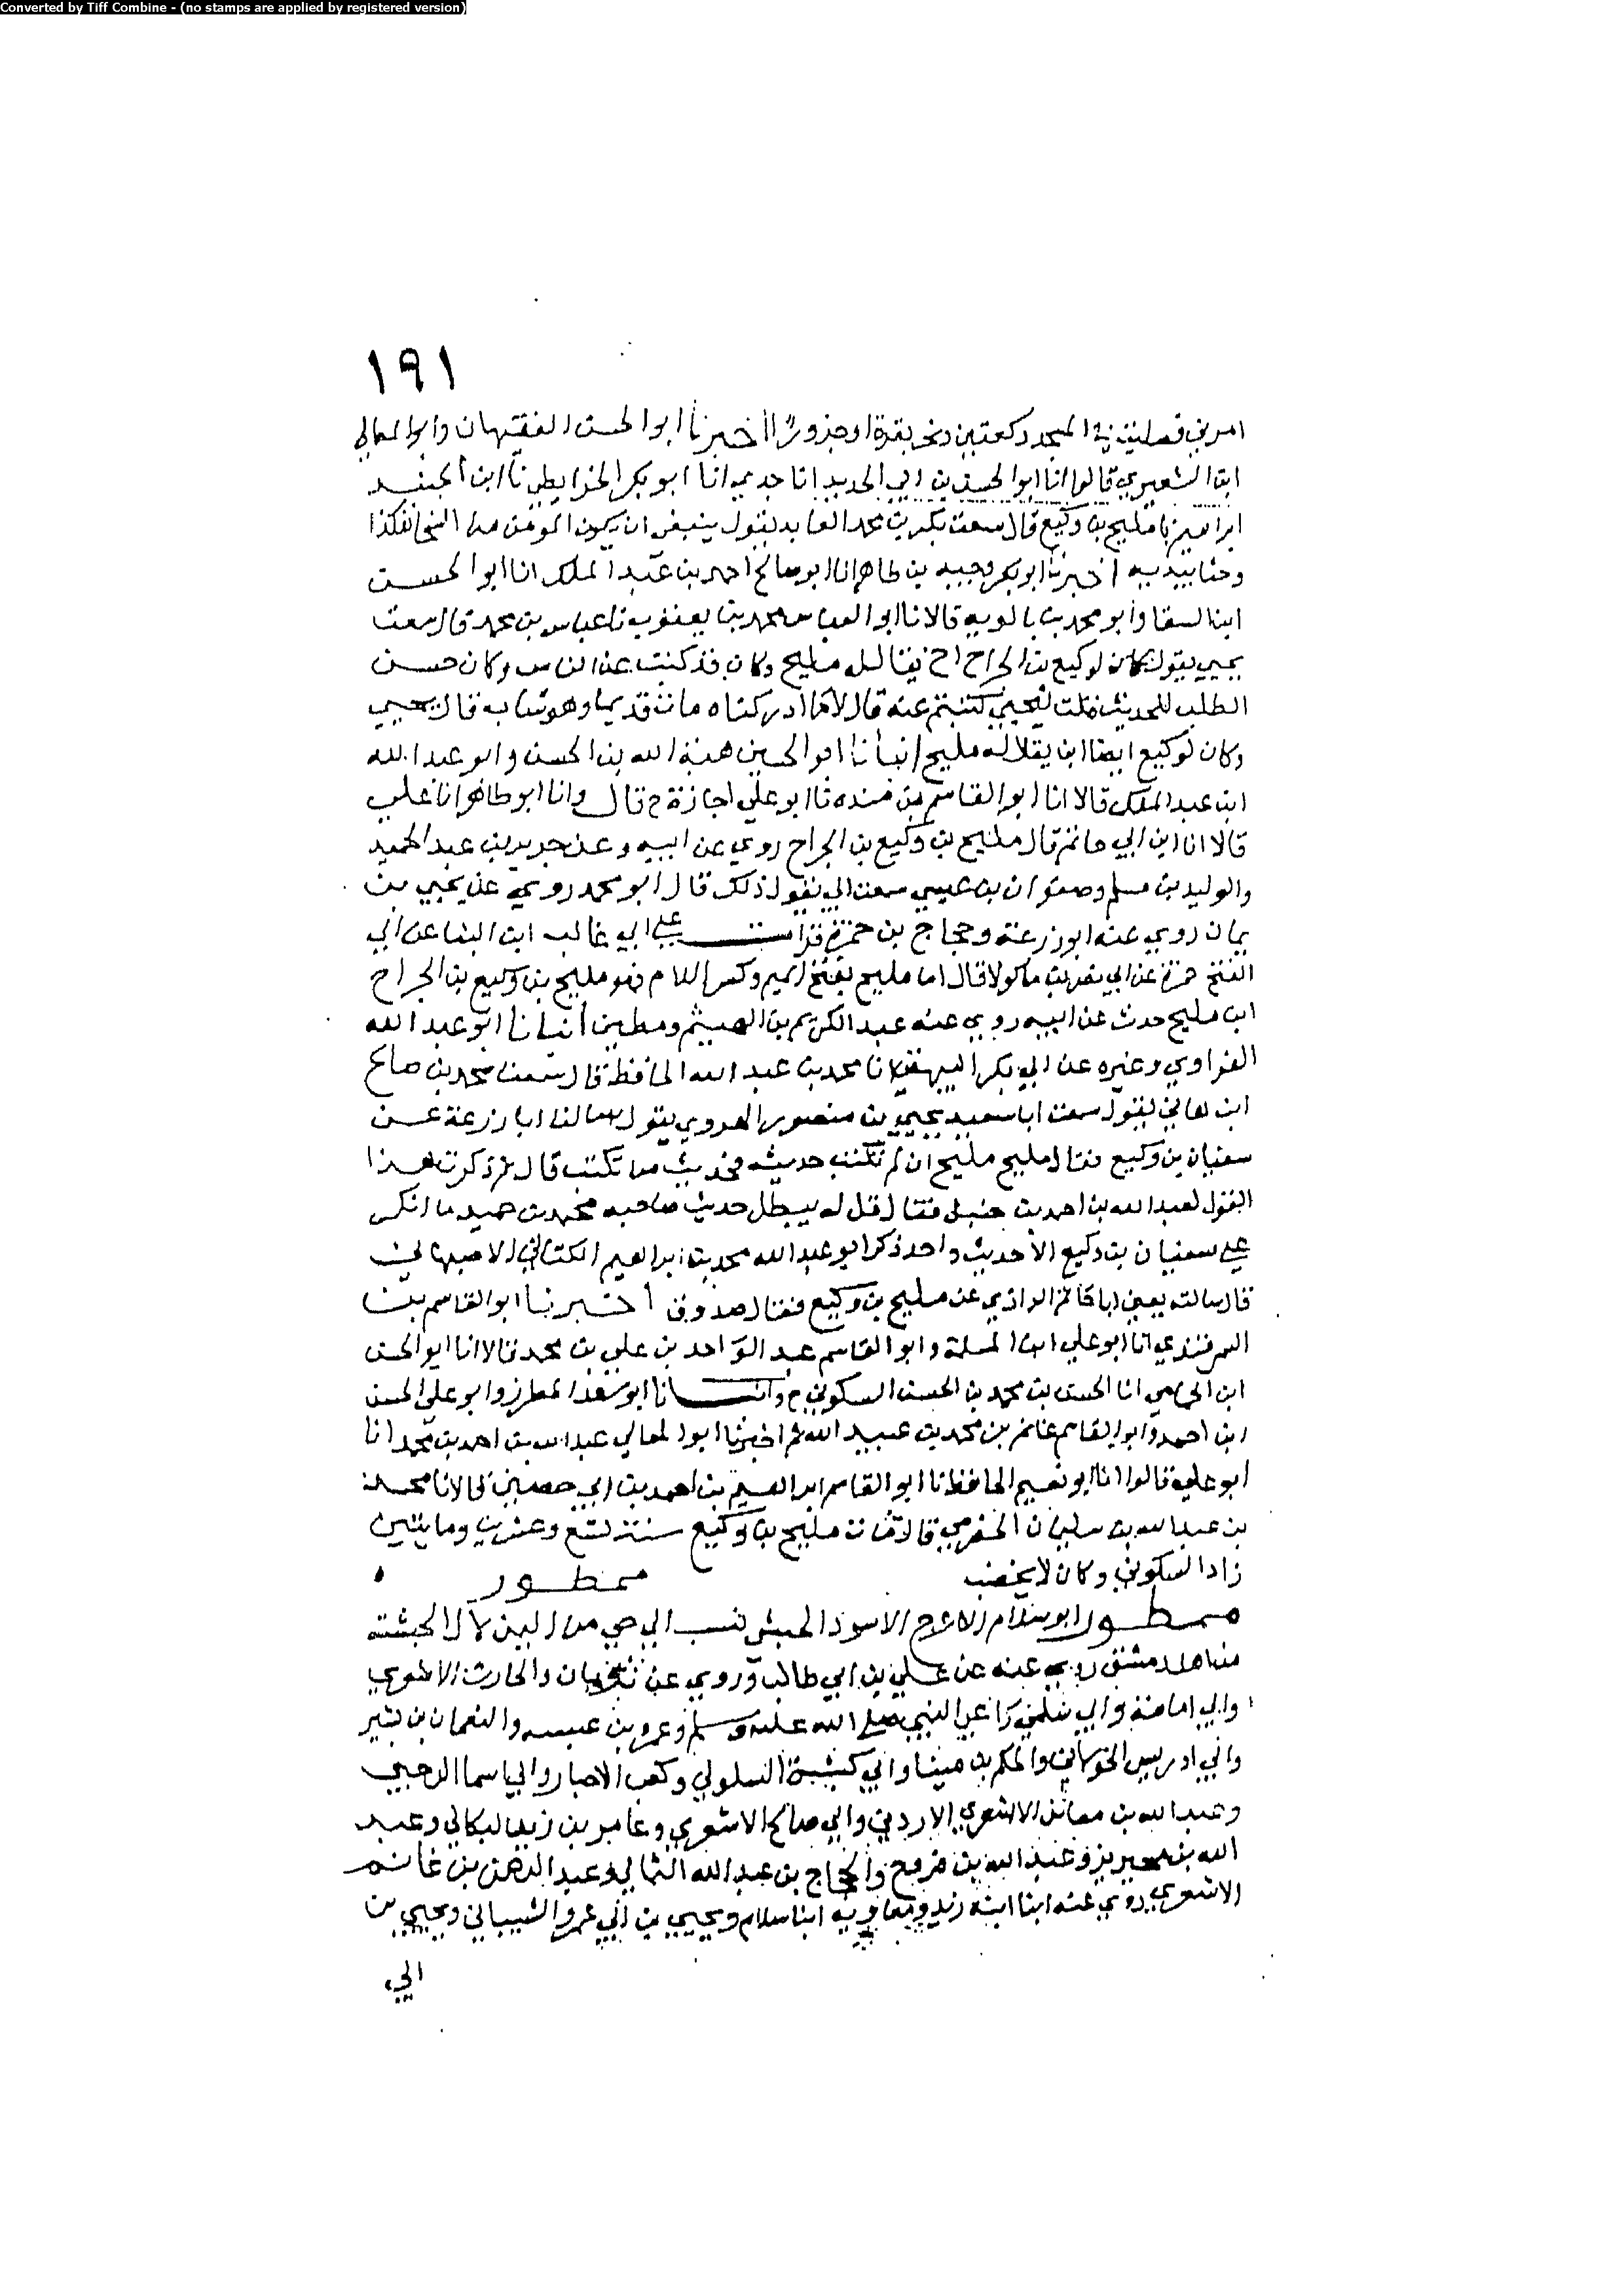 Converted by Tiff Combine - (no stamps are applied by registered version)
١٩١
امرني فصليت في المسجد ركعتين ونحر بقرة او جزورا اخبرنا ابو الحسن الفقيهان وابو المعالي
ابن الشعيري قالوا انا ابو الحسن بن ابي الحديد انا جدي انا ابو بكر الخرايطي نا ابن الجنيد
ابراهيم نا مليح بن وكيع قال سمعت بكر بن محمد العابد يقول ينبغي ان يكون المومن من السخا هكذا
وحثا بيديه اخبرنا ابو بكر وجيه بن طاهر انا ابو صالح احمد بن عبد الملك انا ابو الحسن
ابن السقا وابو محمد بن بالويه قالا نا ابو العباس محمد بن يعقوب نا عباس بن محمد قال سمعت
يحيى يقول كان لوكيع بن الجراح اخ يقال له مليح وكان قد كتب عن الناس وكان حسن
الطلب للحديث فقلت ليحيى كتبتم عنه قال لا ما ادركناه مات قديما وهو شاب قال يحيى
وكان لوكيع ايضا ابن يقال له مليح انبانا ابو الحسين هبة الله بن الحسن وابو عبد الله
ابن عبد الملك قالا انا ابو القاسم بن منده نا ابو علي اجازة ح قال وانا ابو طاهر انا علي
قالا انا ابن ابي حاتم قال مليح بن وكيع بن الجراح روى عن ابيه وعن جرير بن عبد الحميد
والوليد بن مسلم وصفوان بن عيسى سمعت ابي يقول ذلك قال ابو محمد روى عن يحيى بن
يمان روى عنه ابو زرعة وحجاج بن حمزة قرات على ابي غالب ابن البنا عن ابي
الفتح حمزة عن ابي نصر بن ماكولا قال اما مليح بفتح الميم وكسر اللام فهو مليح بن وكيع بن الجراح
ابن مليح حدث عن ابيه روى عنه عبد الكريم بن الهيثم ومطين انبانا ابو عبد الله
الفراوي وغيره عن ابي بكر البيهقي انا محمد بن عبد الله الحافظ قال سمعت محمد بن صالح
ابن هاني يقول سمعت ابا سعيد يحيى بن منصور الهروي يقول سالنا ابا زرعة عن
سفيان بن وكيع فقال مليح مليح ان لم تكتب حديثه فحديث من تكتب قال ثم ذكرت هذا
القول لعبد الله بن احمد بن حنبل فقال قل له يبطل حديث صاحبه محمد بن حميد ما انكر
على سفيان بن وكيع الا حديث واحد ذكر ابو عبد الله محمد بن ابراهيم الكتاني الاصبهاني
قال سالته يعني ابا حاتم الرازي عن مليح بن وكيع فقال صدوق اخبرنا ابو القاسم بن
السمرقندي انا ابو علي ابن المسلمة وابو القاسم عبد الواحد بن علي بن محمد قالا انا ابو الحسن
ابن الحمامي انا الحسن بن محمد بن الحسن السكوني ح وانبانا ابو سعد المطرز وابو علي الحسن
ابن احمد وابو القاسم غانم بن محمد بن عبيد الله ثم اخبرنا ابو المعالي عبد الله بن احمد بن محمد انا
ابو علي قالوا انا ابو نعيم الحافظ نا ابو القاسم ابراهيم بن احمد بن ابي حصين قالا نا محمد
بن عبد الله بن سليمان الحضرمي قال مات مليح بن وكيع سنة تسع وعشرين ومايتين
زاد السكوني وكان لا يخضب ممطور
ممطور ابو سلام الاعرج الاسود الحبشي نسب الى حي من اليمن لا الى الحبشة
من اهل دمشق روى عنه عن علي بن ابي طالب وروى عن ثوبان والحارث الاشعري
وابي امامة وابي سلمى راعي النبي صلى الله عليه وسلم وعمرو بن عبسه والنعمان بن بشير
وابي ادريس الخولاني والحكم بن مينا وابي كبشة السلولي وكعب الاحبار وابي اسما الرحبي
وعبد الله بن معانق الاشعري الاردني وابي صالح الاشعري وعامر بن زيد البكالي وعبد
الله بن محيريز وعبد الله بن فروخ والحجاج بن عبد الله الثمالي وعبد الرحمن بن غانم
الاشعري روى عنه ابنا ابنه زيد ومعاويه ابنا سلام ويحيى بن ابي عمرو الشيباني ويحيى بن
ابي